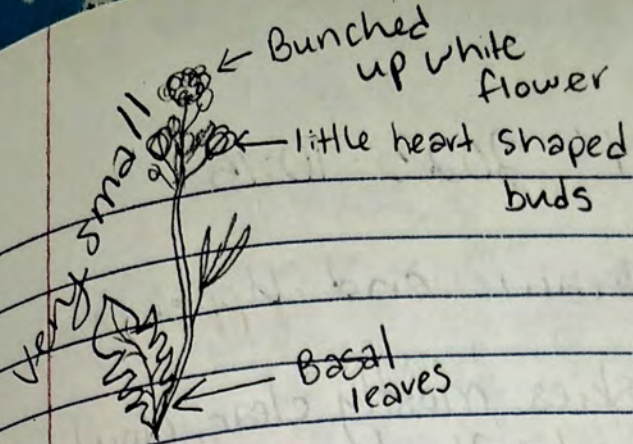 Bunched
up white
flower
little heart shaped
buds
very small
Basal
leaves